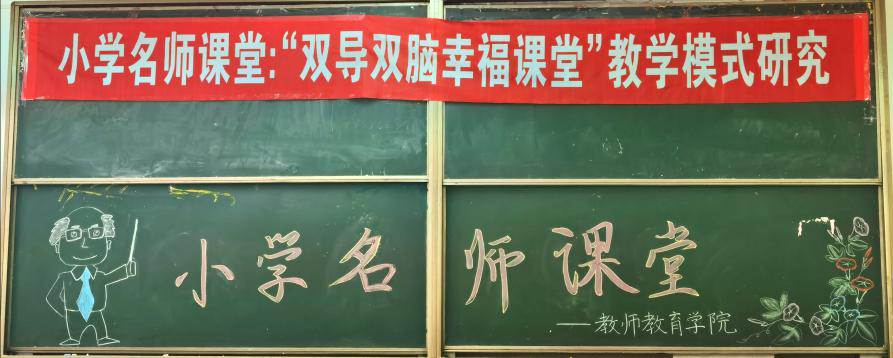 小学名师课堂:“双导双脑幸福课堂”教学模式研究
小学名师课堂
——教师教育学院